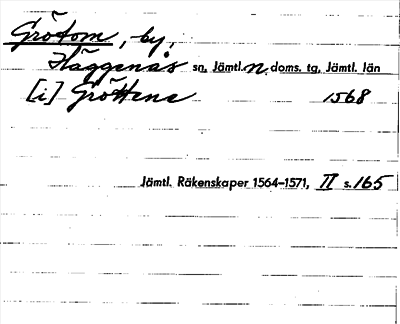 Grötom, by,
Häggenås sn, Jämtl. n. doms. tg, Jämtl. län
[i] Gröttene 1568
Jämtl. Räkenskaper 1564–1571, II s. 165